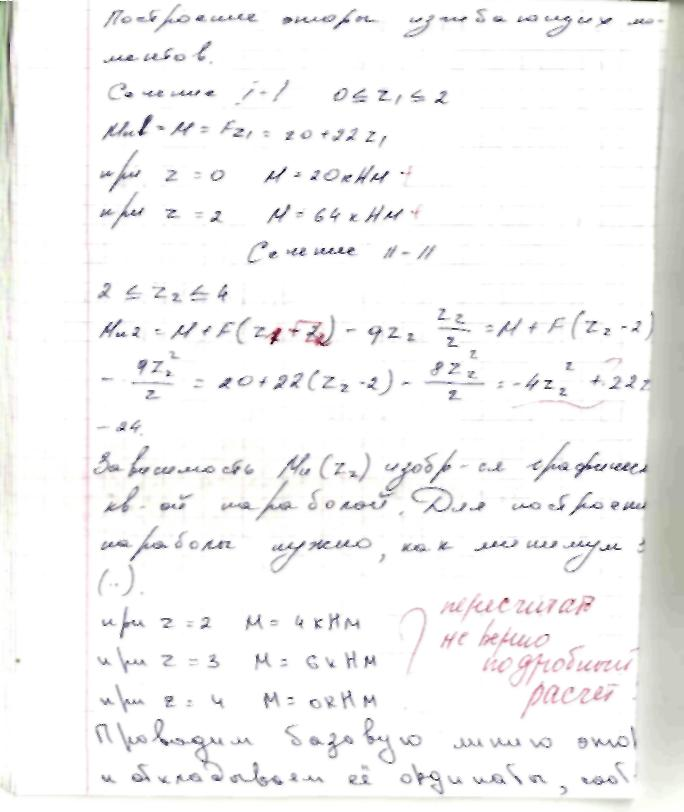 Построение эпюры изгибающих мо-
ментов.
Сечение I-I 0 ≤ z₁ ≤ 2
Ми1 = M = Fz₁ = 20+22z₁
при z = 0 M = 20кНм +
при z = 2 M = 64кНм +
Сечение II-II
2 ≤ z₂ ≤ 4
Ми2 = M + F(z₁+z₂) - qz₂ z₂/2 = M + F(z₂-2)
- qz₂²/2 = 20+22(z₂-2) - 8z₂²/2 = -4z₂² + 22z
-24.
Зависимость Ми(z₂) изобр-ся графичес
кв-ой параболой. Для построени
параболы нужно, как минимум 3
(..).
при z = 2 M = 4кНм
при z = 3 M = 6кНм
при z = 4 M = 0кНм
пересчитать
не верно
подробный
расчет
Проводим базовую линию эпюр
и откладываем её ординаты, соот